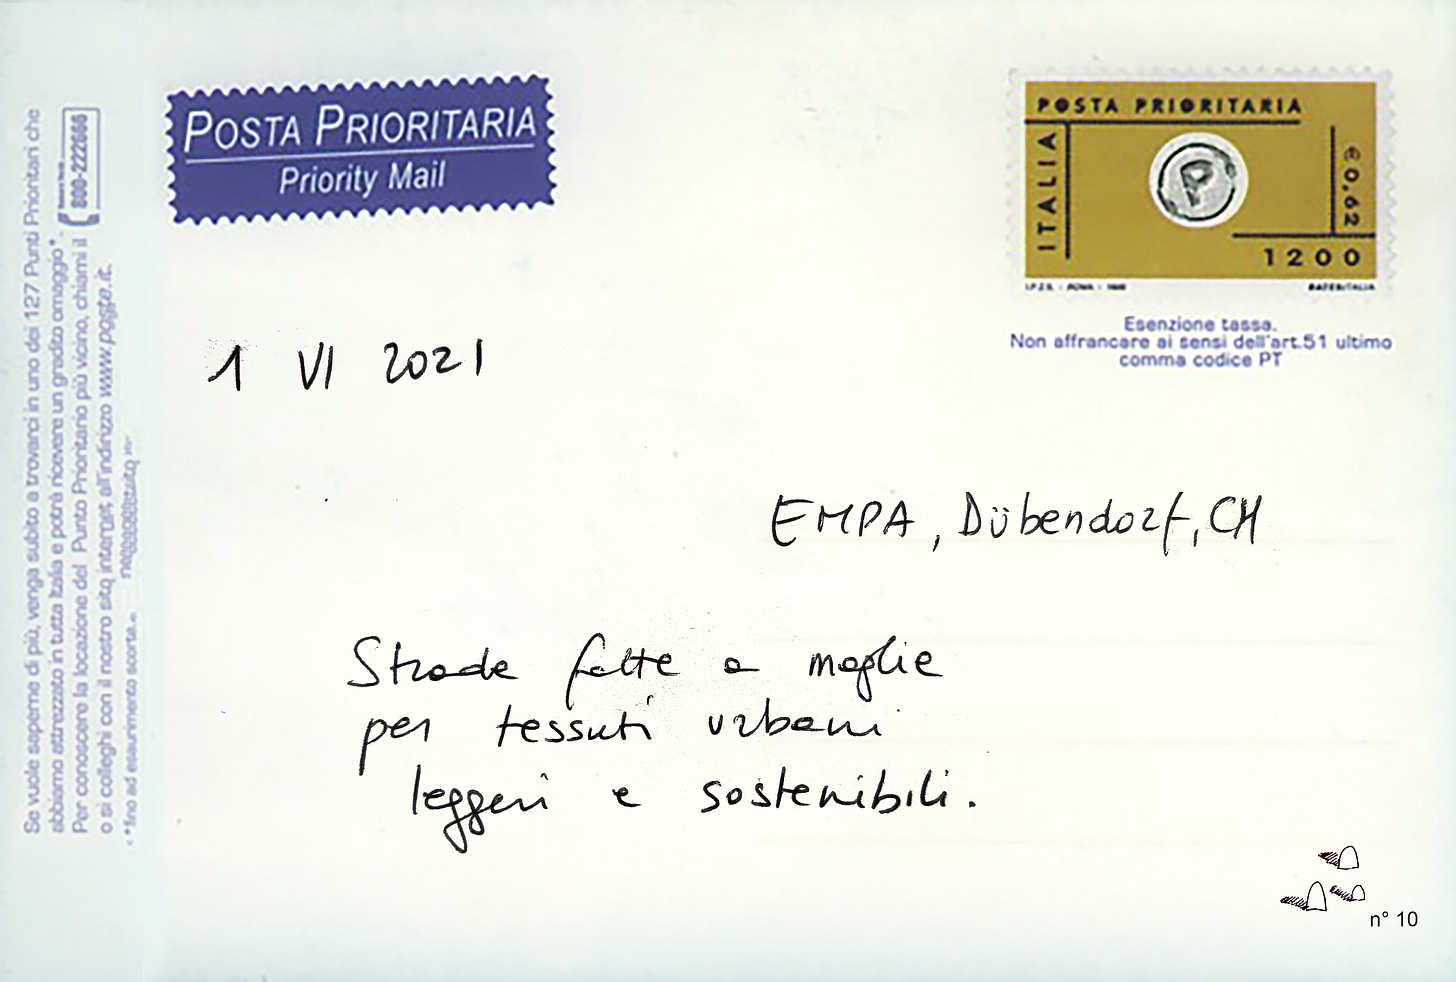 POSTA PRIORITARIA
Priority Mail
POSTA PRIORITARIA
ITALIA
€ 0,62
1200
I.P.Z.S. - ROMA - 1999
Esenzione tassa.
Non affrancare ai sensi dell'art.51 ultimo
comma codice PT
1 VI 2021
EMPA, Dübendorf, CH
Strade fatte a maglie
per tessuti urbani
leggeri e sostenibili.
n° 10
Se vuole saperne di più, venga subito a trovarci in uno dei 127 Punti Prioritari che
abbiamo attrezzato in tutta Italia e potrà ricevere un gradito omaggio*.
Per conoscere la locazione del Punto Prioritario più vicino, chiami il
800-222666
o si colleghi con il nostro sito internet all'indirizzo www.poste.it.
*fino ad esaurimento scorte.